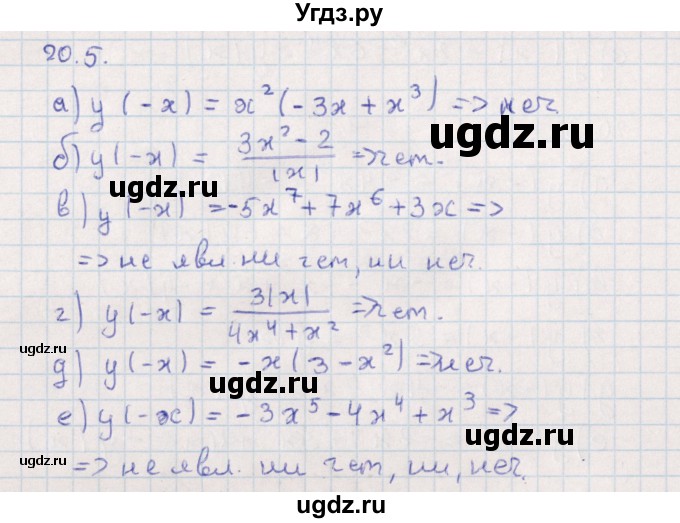 Угдз.ру
20.5.
а) y(-x) = x²(-3x + x³) => неч.
ugdz.ru
б) y(-x) = \frac{3x² - 2}{|x|} => чет.
ugdz.ru
в) y(-x) = -5x⁷ + 7x⁶ + 3x =>
=> не явл. ни чет, ни неч.
ugdz.ru
г) y(-x) = \frac{3|x|}{4x⁴ + x²} => чет.
ugdz.ru ugdz.ru
д) y(-x) = -x(3 - x²) => неч.
ugdz.ru
е) y(-x) = -3x⁵ - 4x⁴ + x³ =>
ugdz.ru
=> не явл. ни чет, ни, неч.
ugdz.ru
ugdz.ru